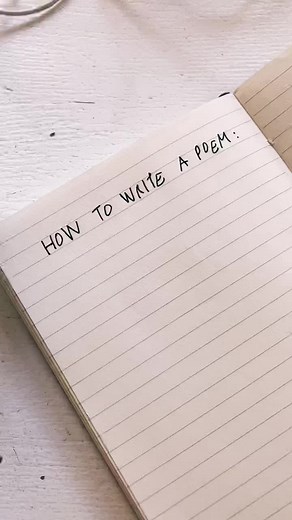 HOW TO WRITE A POEM: